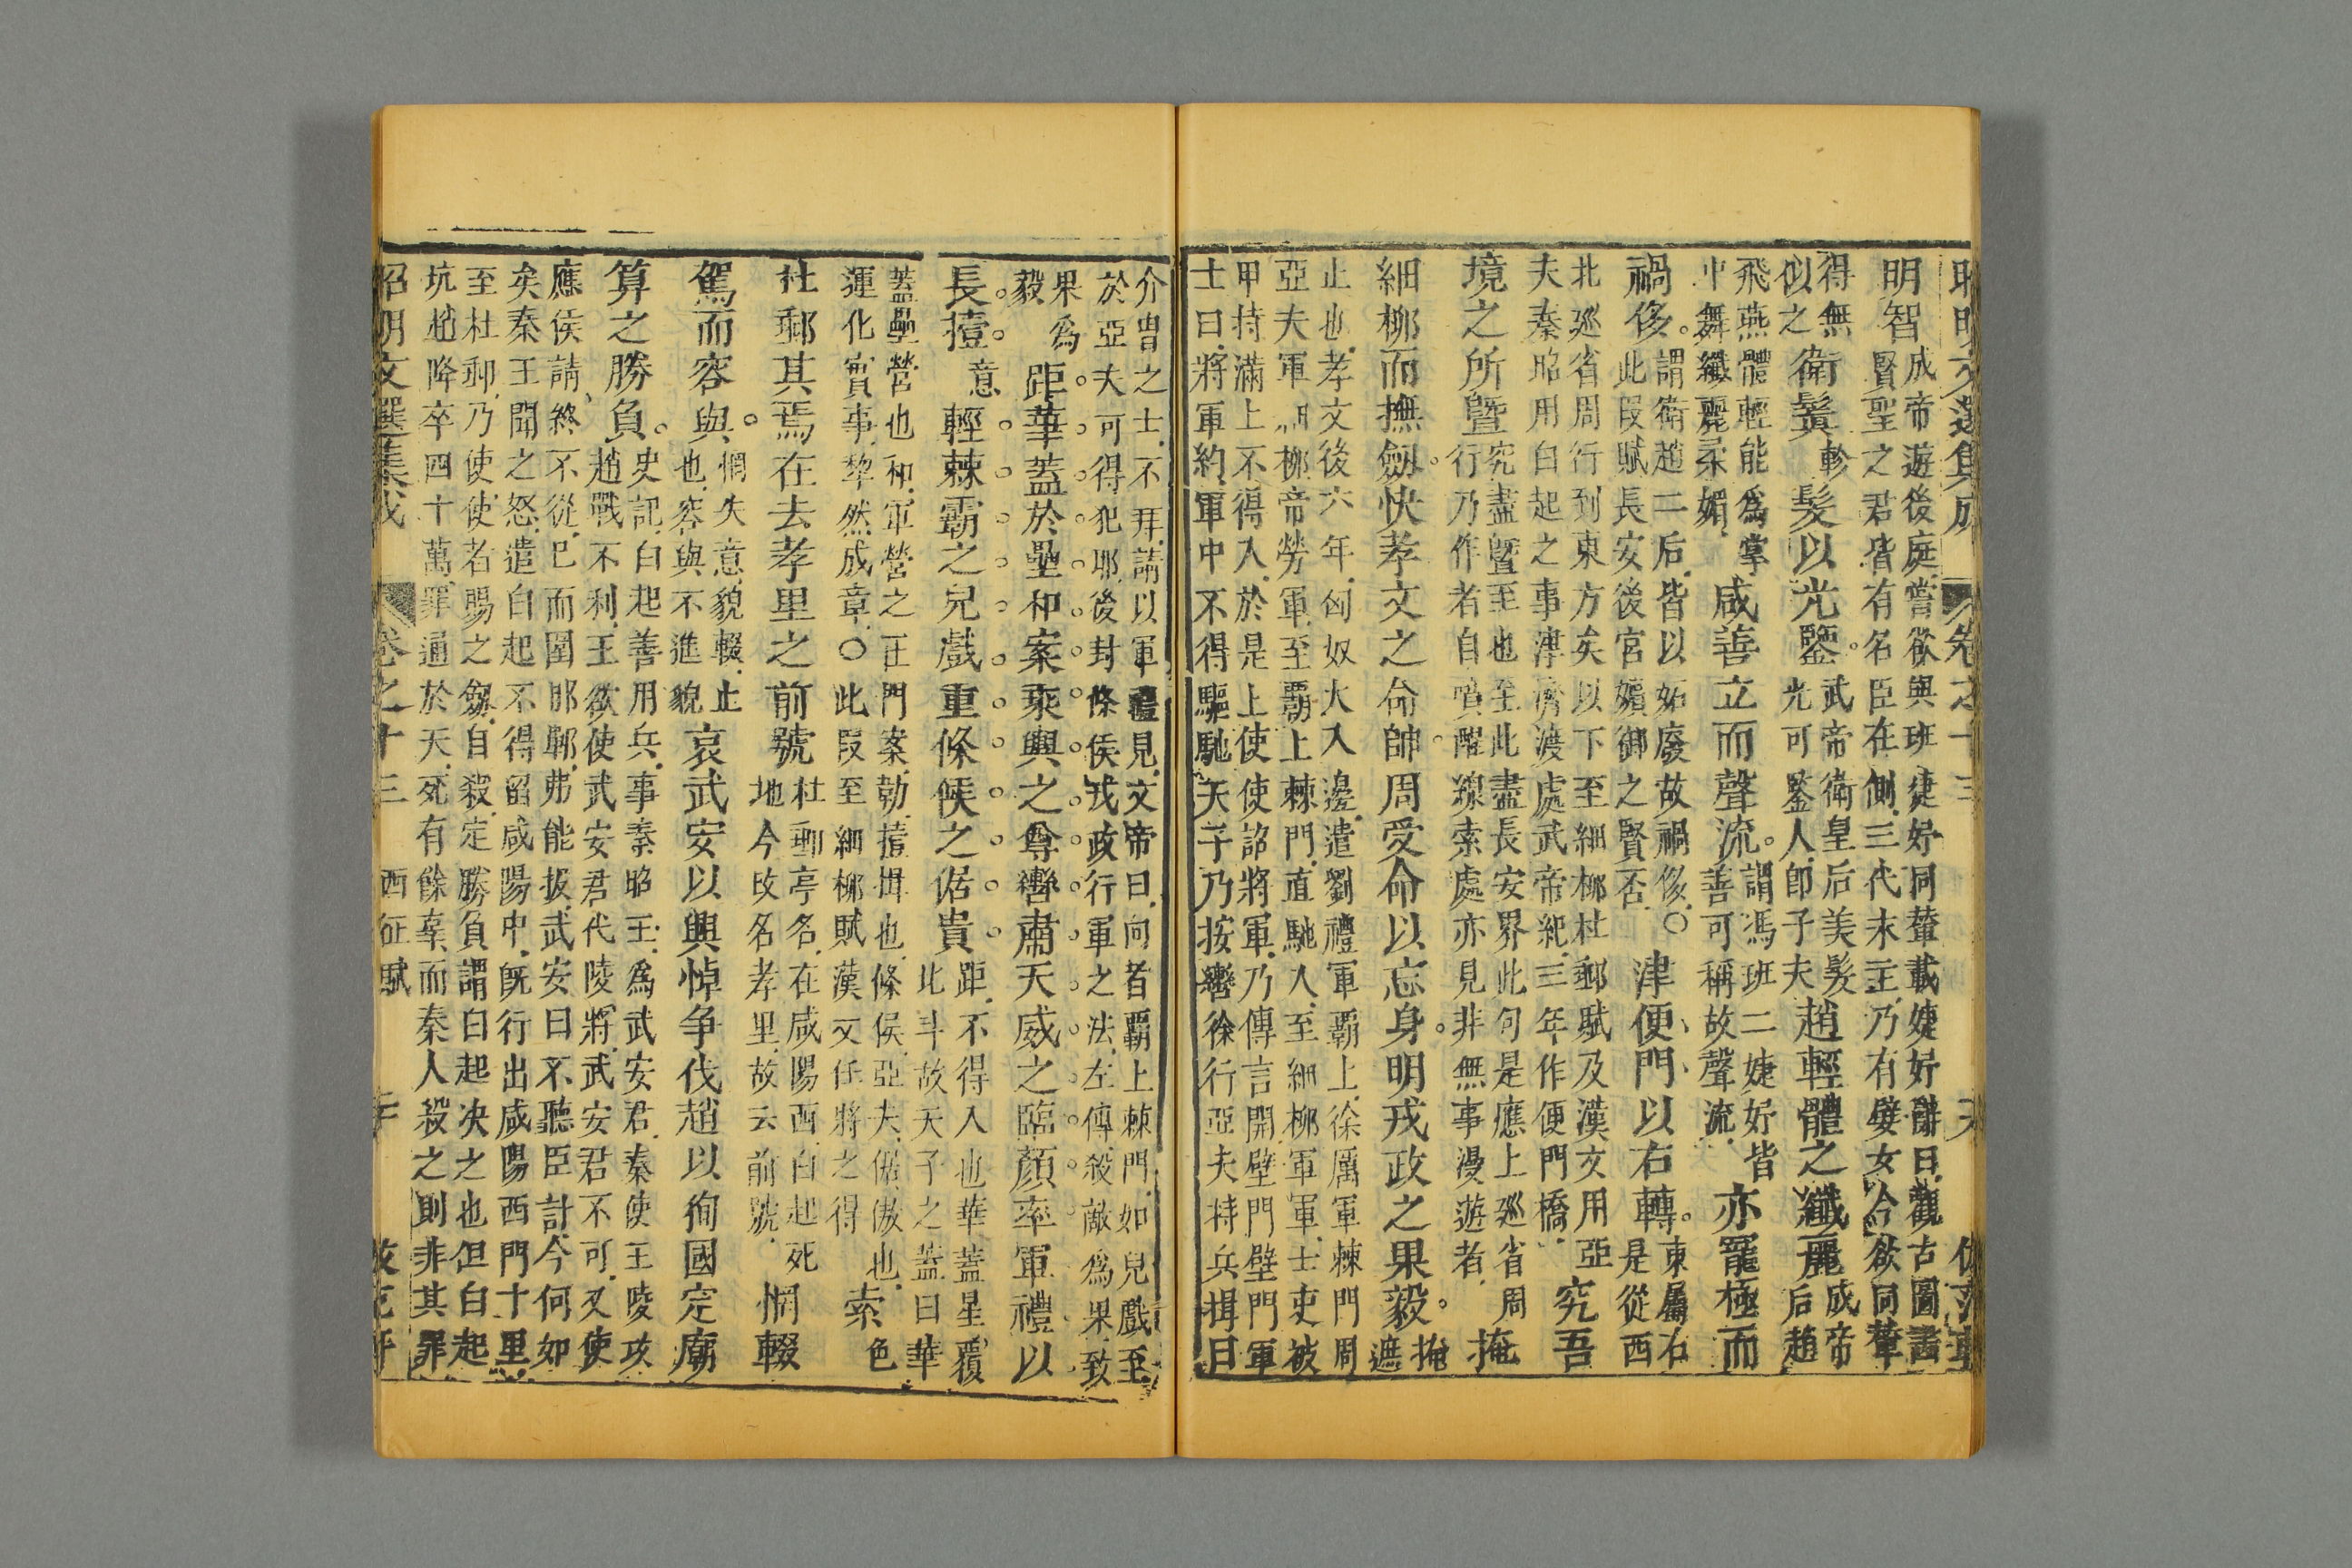 昭明文選集成 卷之十三
明智成帝遊後庭嘗欲與班婕妤同輦載婕妤辭曰觀古圖畫
賢聖之君皆有名臣在側三代末主乃有嬖女今欲同輦
得無似之衛鬒軫髮以光鑒武帝衛皇后美髮光可鑒人即子夫趙輕體之纖麗成帝后趙
飛燕體輕能為掌中舞纖麗柔媚咸善立而聲流謂馮班二婕妤皆善可稱故聲流亦寵極而
禍侈謂衛趙二后皆以妬廢故禍侈〇此段賦長安後宮嬪御之賢否津便門以右轉東屬右是從西
北廵省周行到東方矣以下至細柳杜郵賦及漢文用亞
夫秦昭用白起之事津濟渡處武帝紀三年作便門橋究吾
境之所曁究盡曁至也至此盡長安界此句是應上廵省周行乃作者自喚醒線索處亦見非無事漫遊者掩
細柳而撫劔快孝文之命帥周受命以忘身明戎政之果毅掩遮
止也孝文後六年匈奴大入邊遣劉禮軍霸上徐厲軍棘門周
亞夫軍細柳帝勞軍至霸上棘門直馳入至細柳軍軍士吏被
甲持滿上不得入於是上使使詔將軍乃傳言開壁門壁門軍
士曰將軍約軍中不得驅馳天子乃按轡徐行亞夫持兵揖曰
介胄之士不拜請以軍禮見文帝曰向者霸上棘門如兒戲至
於亞夫可得犯耶後封條侯戎政行軍之法左傳殺敵為果致
果為毅距華蓋於壘和案乘輿之尊轡肅天威之臨顏率軍禮以
長撎意輕棘霸之兒戲重條侯之倨貴距不得入也華蓋星覆此斗故天子之蓋曰華
蓋壘營也和軍營之正門案勒撎揖也條侯亞夫倨傲也
運化實事犂然成章〇此段至細柳賦漢文任將之得索色
杜郵其焉在去孝里之前號杜郵亭名在咸陽西白起死地今改名孝里故云前號惘輟
駕而容與惘失意貌輟止也容與不進貌哀武安以興悼争伐趙以狥國定廟
算之勝負史記白起善用兵事秦昭王為武安君秦使王陵攻
趙戰不利王欲使武安君代陵將武安君不可又使
應侯請終不從已而圍邯鄲弗能拔武安曰不聽臣計今何如
矣秦王聞之怒遣白起不得留咸陽中既行出咸陽西門十里
至杜郵乃使使者賜之劔自殺定勝負謂白起决之也但白起
坑趙降卒四十萬罪通於天死有餘辜而秦人殺之則非其罪
昭明文選集成 卷之十三 西征賦